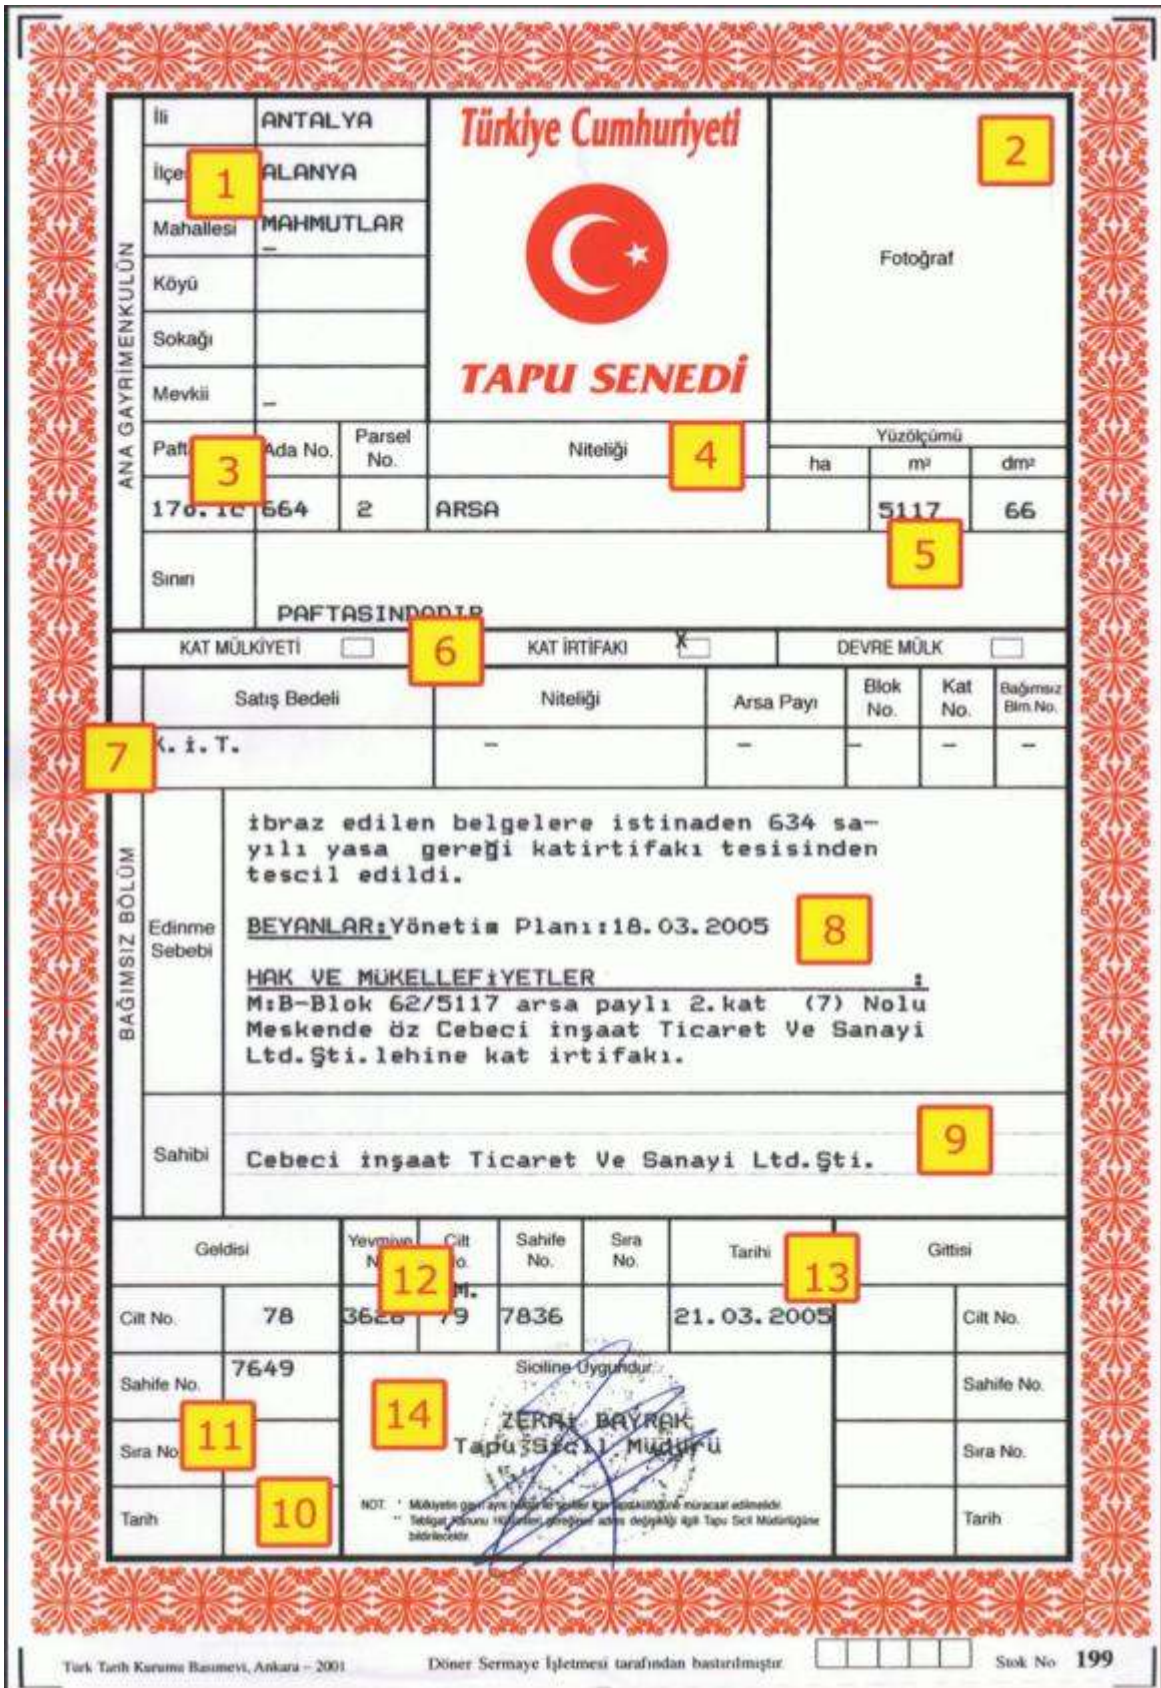 İli ANTALYA
Türkiye Cumhuriyeti
2
1
İlçe ALANYA
Mahallesi MAHMUTLAR
–
Fotoğraf
Köyü
Sokağı
Mevkii –
TAPU SENEDİ
ANA GAYRİMENKULÜN
3
Ada No.
Parsel No.
Niteliği
4
Yüzölçümü
ha m² dm²
664 2 ARSA 5117 66
5
Sınırı
PAFTASINDADIR
KAT MÜLKİYETİ
6
KAT İRTİFAKI X
DEVRE MÜLK
Satış Bedeli Niteliği Arsa Payı Blok No. Kat No. Bağımsız Blm.No.
7
K.İ.T. – – – – –
BAĞIMSIZ BÖLÜM
Edinme Sebebi
İbraz edilen belgelere istinaden 634 sa-
yılı yasa gereği katirtifakı tesisinden
tescil edildi.
BEYANLAR:Yönetim Planı:18.03.2005
8
HAK VE MÜKELLEFİYETLER :
M:B-Blok 62/5117 arsa paylı 2.kat (7) Nolu
Meskende öz Cebeci inşaat Ticaret Ve Sanayi
Ltd.Şti.lehine kat irtifakı.
9
Sahibi
Cebeci inşaat Ticaret Ve Sanayi Ltd.Şti.
Geldisi
Yevmiye
Cilt
Sahife No.
Sıra No.
Tarihi
Gittisi
12
13
M.
Cilt No. 78 3628 79 7836 21.03.2005 Cilt No.
Sahife No. 7649
Siciline Uygundur.
Sahife No.
14
ZEKAİ BAYRAK
Tapu Sicil Müdürü
11
Sıra No
Sıra No.
10
Tarih
Tarih
NOT: * Mülkiyetin gayri ayni haklar ile şerhler için tapu kütüğüne müracaat edilmelidir.
** Tebligat Kanunu Hükümleri gereğince adres değişikliği ilgili Tapu Sicil Müdürlüğüne
bildirilecektir.
Türk Tarih Kurumu Basımevi, Ankara – 2001
Döner Sermaye İşletmesi tarafından bastırılmıştır.
Stok No 199